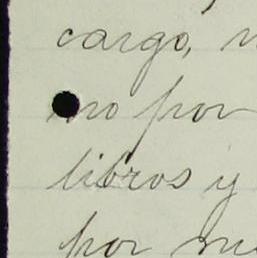 cargo,
no por
libros y
por